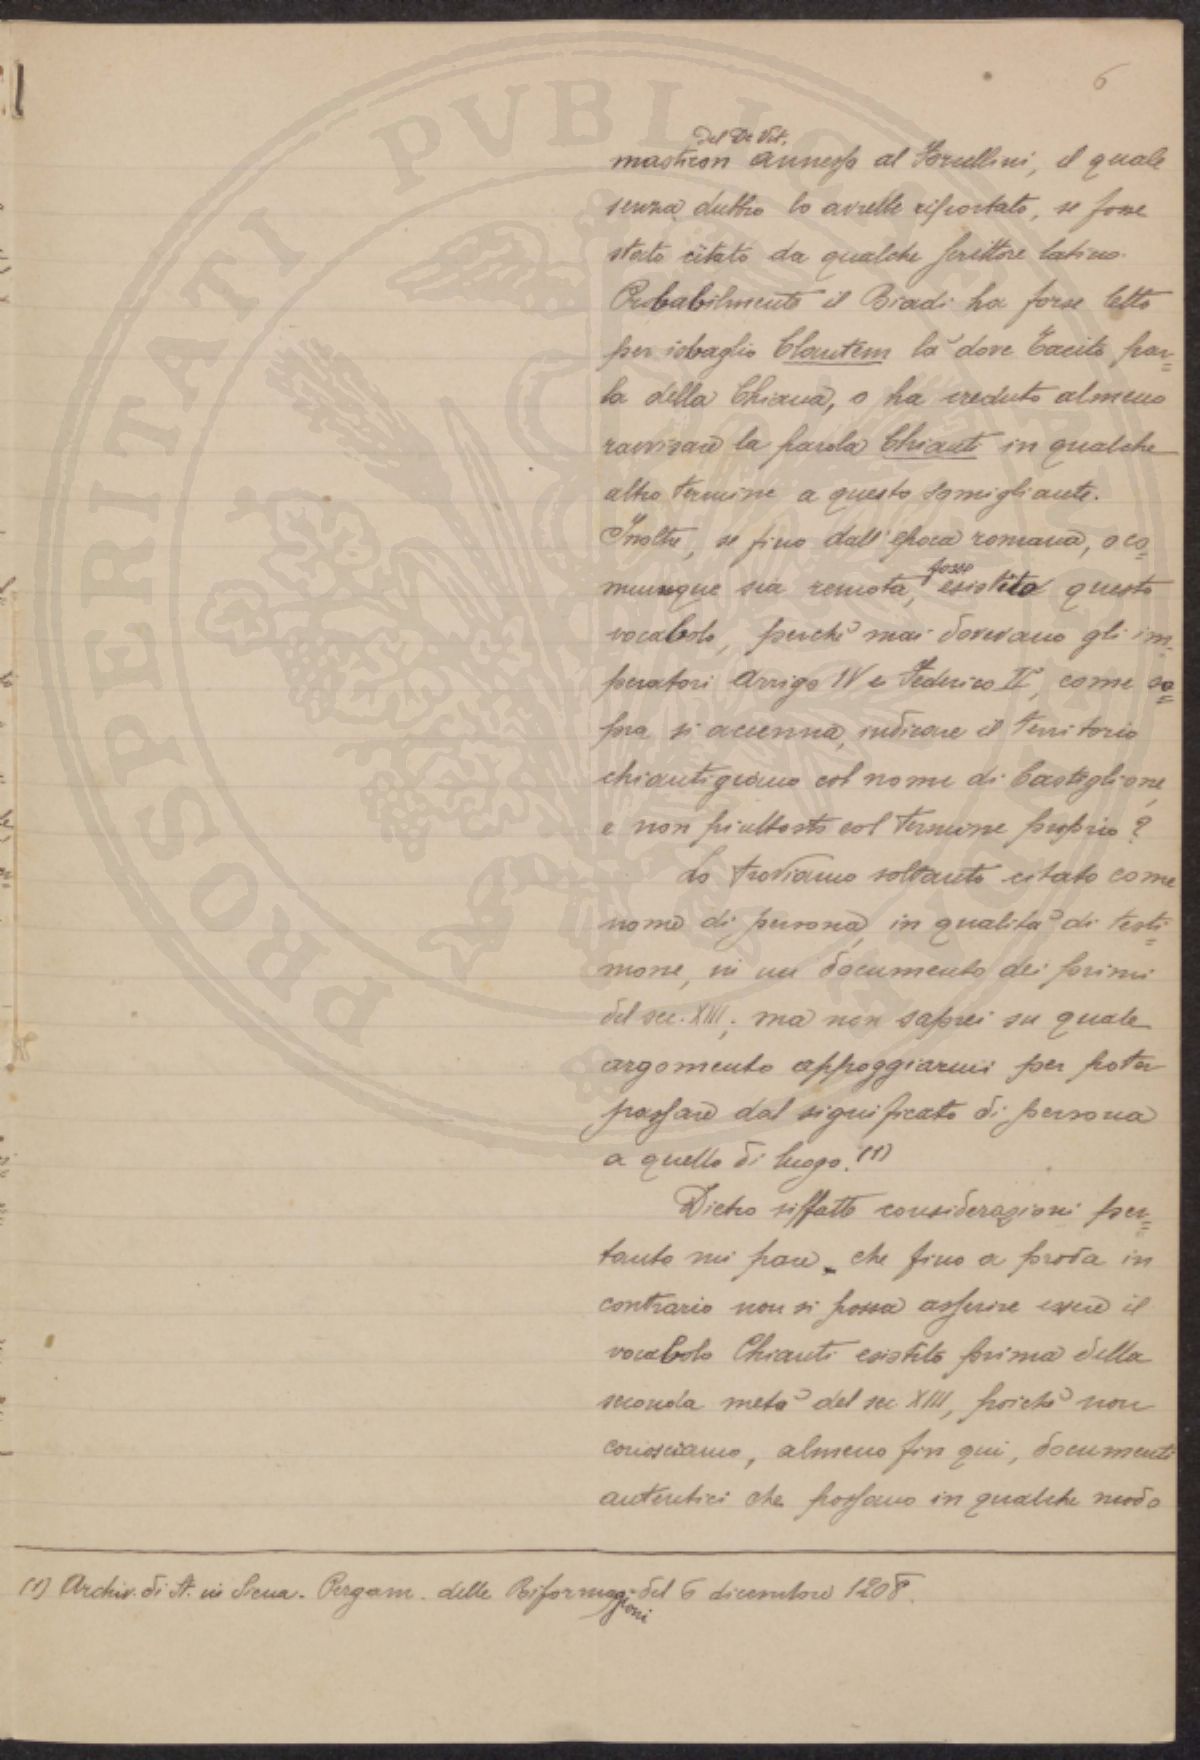 6
del De Vit.
masticon annesso al Forcellini, il quale
senza dubbio lo avrebbe riportato, se fosse
stato citato da qualche scrittore latino.
Probabilmente il Biadi ha forse letto
per isbaglio Clantem là dove Tacito par=
la della Chiana, o ha creduto almeno
ravvisare la parola Chianti in qualche
altro termine a questo somigliante.
Inoltre, se fino dall'epoca romana, o co=
munque sia remota, fosse esistito questo
vocabolo, perchè mai dovevano gli im=
peratori Arrigo IV e Federico II, come so=
pra si accenna, indicare il territorio
chiantigiano col nome di Castiglione,
e non piuttosto col termine proprio?
Lo troviamo soltanto citato come
nome di persona, in qualità di testi=
mone, in un documento dei primi
del sec. XIII; ma non saprei su quale
argomento appoggiarmi per poter
passare dal significato di persona
a quello di luogo. (1)
Dietro siffatte considerazioni per=
tanto mi pare che fino a prova in
contrario non si possa asserire essere il
vocabolo Chianti esistito prima della
seconda metà del sec. XIII, poichè non
conosciamo, almeno fin qui, documenti
autentici che possano in qualche modo
(1) Archiv. di St. in Siena. Pergam. delle Riformagioni del 6 dicembre 1208.
PROSPERITATI PVBLICAE